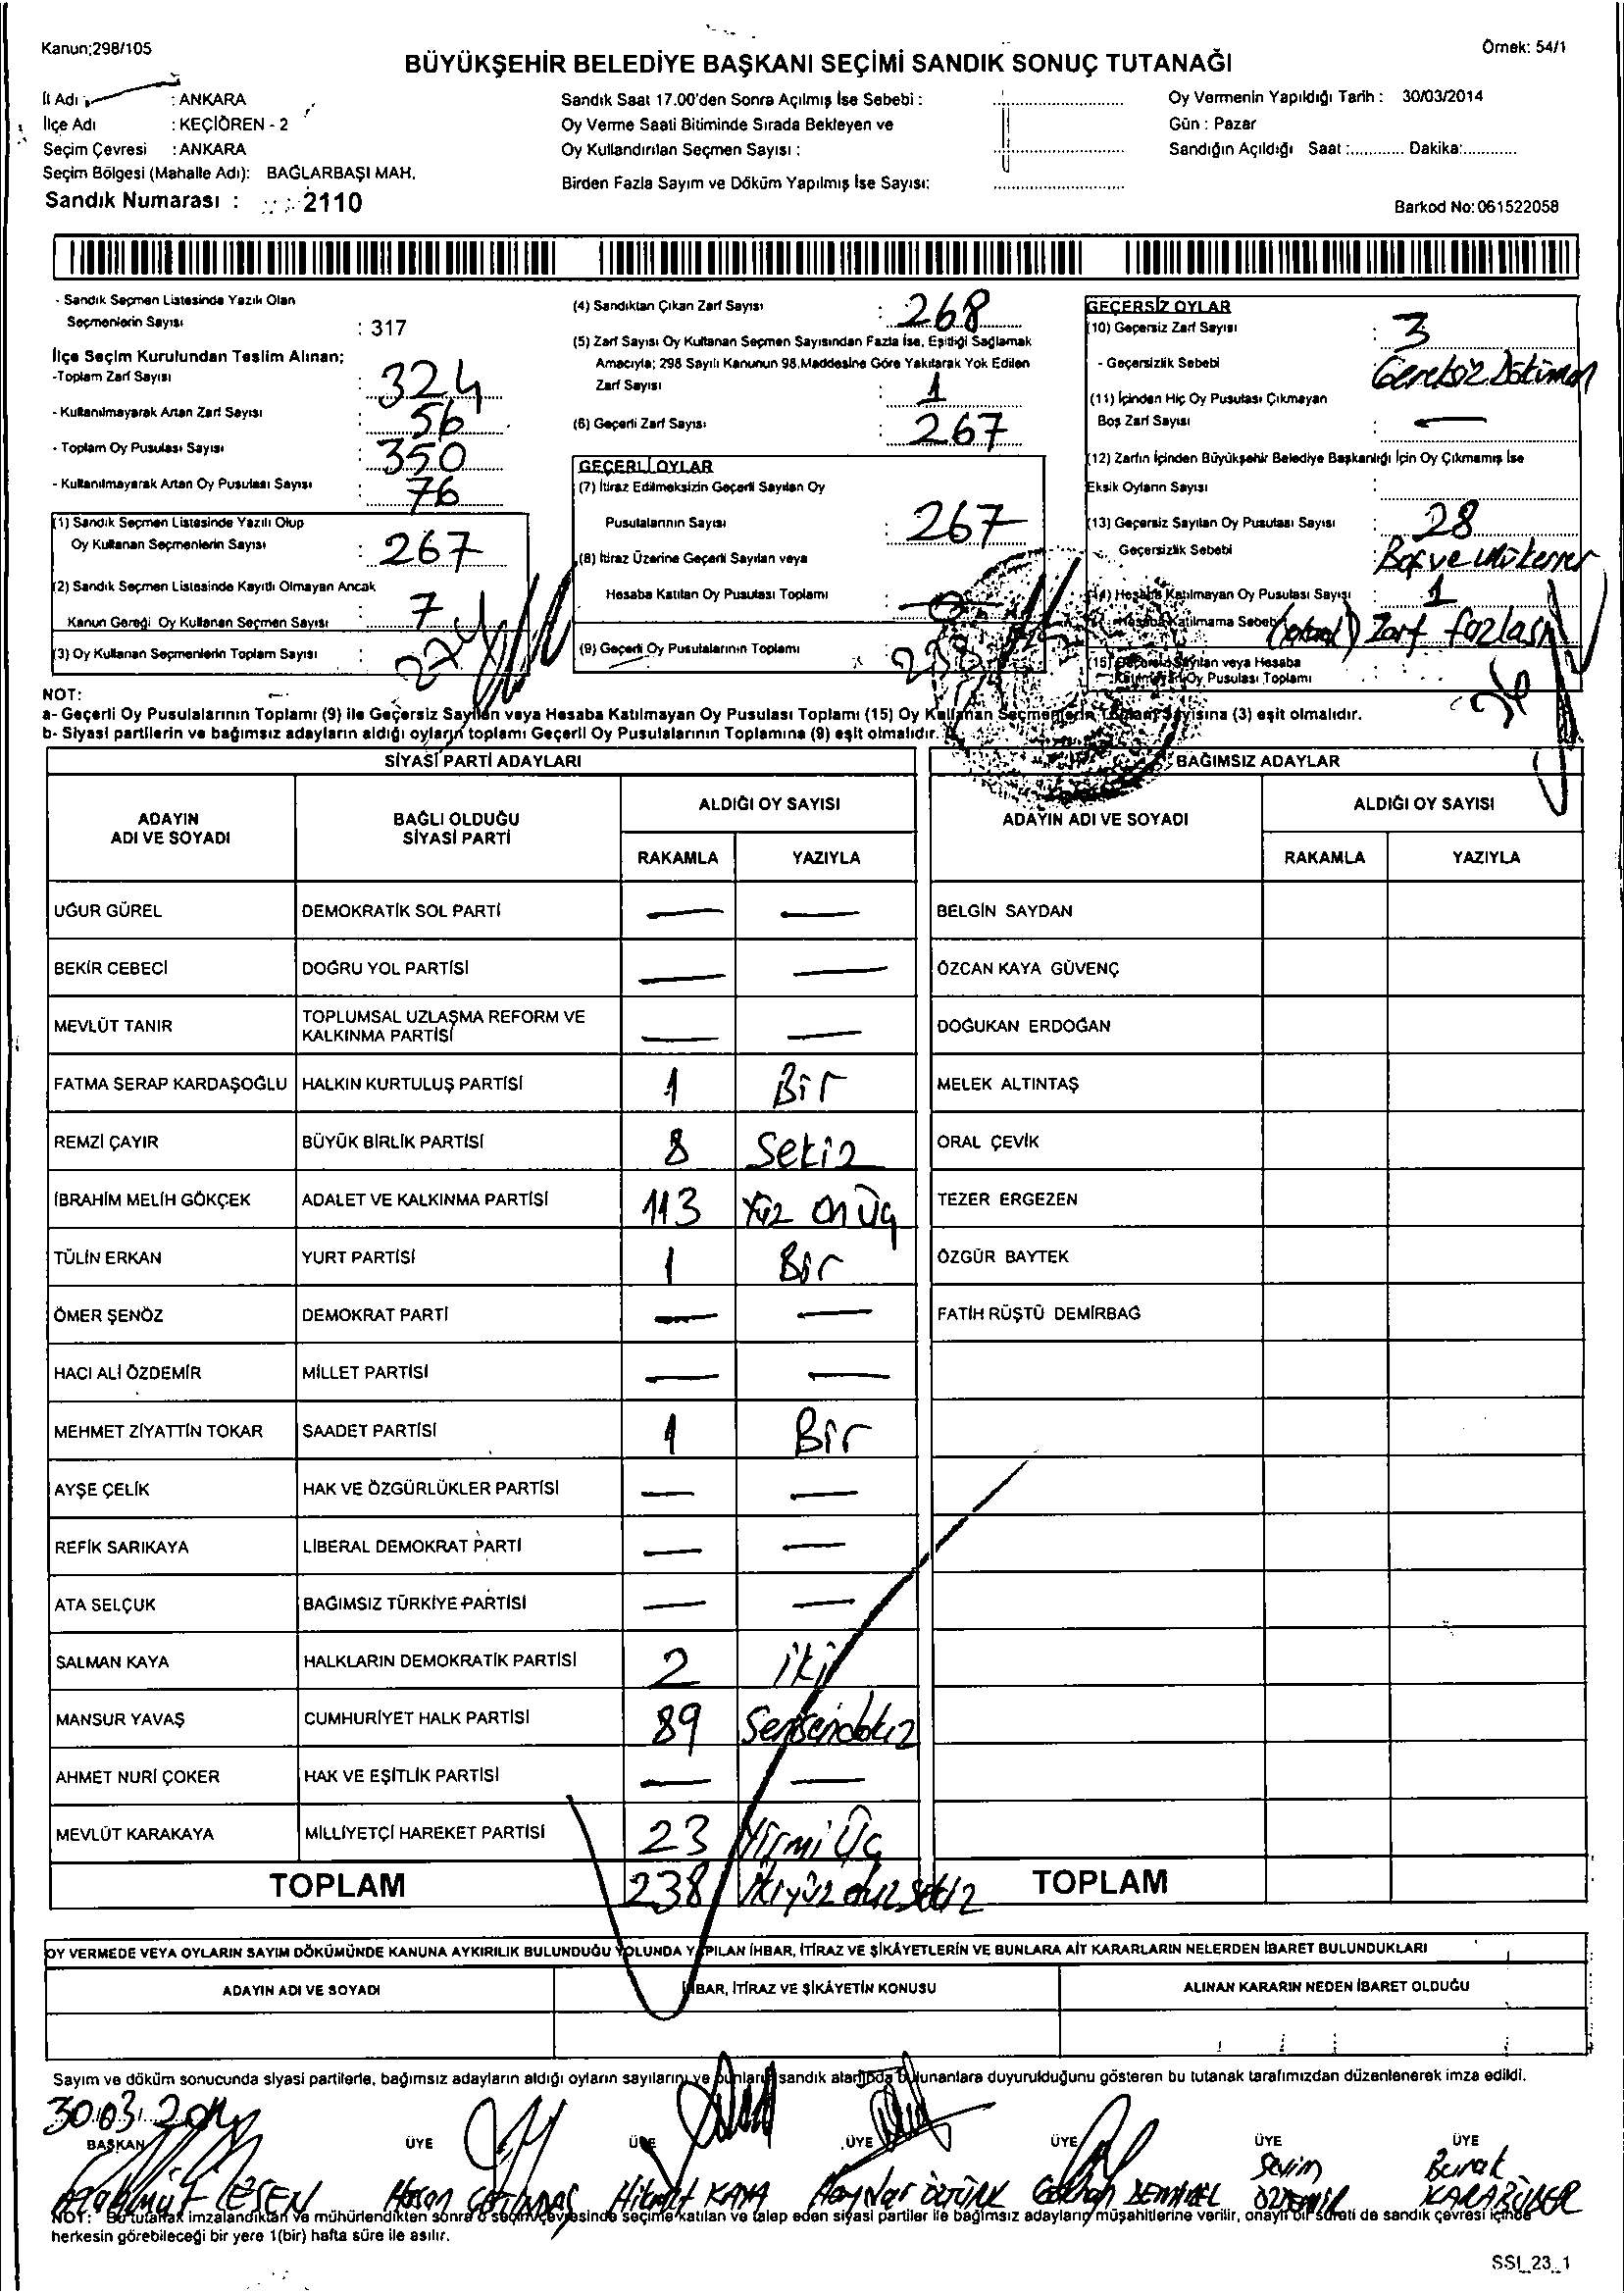 Kanun;298/105
Örnek: 54/1
BÜYÜKŞEHİR BELEDİYE BAŞKANI SEÇİMİ SANDIK SONUÇ TUTANAĞI
İl Adı : ANKARA
İlçe Adı : KEÇİÖREN - 2
Seçim Çevresi : ANKARA
Seçim Bölgesi (Mahalle Adı): BAĞLARBAŞI MAH.
Sandık Numarası : 2110
Sandık Saat 17.00'den Sonra Açılmış İse Sebebi :
Oy Verme Saati Bitiminde Sırada Bekleyen ve
Oy Kullandırılan Seçmen Sayısı :
Birden Fazla Sayım ve Döküm Yapılmış İse Sayısı:
Oy Vermenin Yapıldığı Tarih : 30/03/2014
Gün : Pazar
Sandığın Açıldığı Saat :............ Dakika:............
Barkod No: 061522058
- Sandık Seçmen Listesinde Yazılı Olan
Seçmenlerin Sayısı : 317
İlçe Seçim Kurulundan Teslim Alınan;
-Toplam Zarf Sayısı : 324
- Kullanılmayarak Artan Zarf Sayısı : 56
- Toplam Oy Pusulası Sayısı : 350
- Kullanılmayarak Artan Oy Pusulası Sayısı : 76
(1) Sandık Seçmen Listesinde Yazılı Olup
Oy Kullanan Seçmenlerin Sayısı : 267
(2) Sandık Seçmen Listesinde Kayıtlı Olmayan Ancak
Kanun Gereği Oy Kullanan Seçmen Sayısı : 7
(3) Oy Kullanan Seçmenlerin Toplam Sayısı : 274
(4) Sandıktan Çıkan Zarf Sayısı : 268
(5) Zarf Sayısı Oy Kullanan Seçmen Sayısından Fazla İse, Eşitliği Sağlamak
Amacıyla; 298 Sayılı Kanunun 98.Maddesine Göre Yakılarak Yok Edilen
Zarf Sayısı : 1
(6) Geçerli Zarf Sayısı : 267
GEÇERLİ OYLAR
(7) İtiraz Edilmeksizin Geçerli Sayılan Oy
Pusulalarının Sayısı : 267
(8) İtiraz Üzerine Geçerli Sayılan veya
Hesaba Katılan Oy Pusulası Toplamı
(9) Geçerli Oy Pusulalarının Toplamı :
GEÇERSİZ OYLAR
(10) Geçersiz Zarf Sayısı : 3
- Geçersizlik Sebebi : Gereksiz Döküman
(11) İçinden Hiç Oy Pusulası Çıkmayan
Boş Zarf Sayısı : —
(12) Zarfın İçinden Büyükşehir Belediye Başkanlığı İçin Oy Çıkmamış İse
Eksik Oyların Sayısı :
(13) Geçersiz Sayılan Oy Pusulası Sayısı : 28
Geçersizlik Sebebi : Boş ve Mükerrer
(14) Hesaba Katılmayan Oy Pusulası Sayısı : 1
Hesaba Katılmama Sebebi Zarf fazlası
(15) Geçersiz Sayılan veya Hesaba
Katılmayan Oy Pusulası Toplamı :
NOT:
a- Geçerli Oy Pusulalarının Toplamı (9) ile Geçersiz Sayılan veya Hesaba Katılmayan Oy Pusulası Toplamı (15) Oy Kullanan Seçmenlerin Toplam Sayısına (3) eşit olmalıdır.
b- Siyasi partilerin ve bağımsız adayların aldığı oyların toplamı Geçerli Oy Pusulalarının Toplamına (9) eşit olmalıdır.
SİYASİ PARTİ ADAYLARI
BAĞIMSIZ ADAYLAR
ADAYIN ADI VE SOYADI
BAĞLI OLDUĞU SİYASİ PARTİ
ALDIĞI OY SAYISI
RAKAMLA YAZIYLA
ADAYIN ADI VE SOYADI
ALDIĞI OY SAYISI
RAKAMLA YAZIYLA
UĞUR GÜREL DEMOKRATİK SOL PARTİ — — BELGİN SAYDAN
BEKİR CEBECİ DOĞRU YOL PARTİSİ — — ÖZCAN KAYA GÜVENÇ
MEVLÜT TANIR TOPLUMSAL UZLAŞMA REFORM VE KALKINMA PARTİSİ — — DOĞUKAN ERDOĞAN
FATMA SERAP KARDAŞOĞLU HALKIN KURTULUŞ PARTİSİ 1 Bir MELEK ALTINTAŞ
REMZİ ÇAYIR BÜYÜK BİRLİK PARTİSİ 8 Sekiz ORAL ÇEVİK
İBRAHİM MELİH GÖKÇEK ADALET VE KALKINMA PARTİSİ 113 Yüz on Üç TEZER ERGEZEN
TÜLİN ERKAN YURT PARTİSİ 1 Bir ÖZGÜR BAYTEK
ÖMER ŞENÖZ DEMOKRAT PARTİ — — FATİH RÜŞTÜ DEMİRBAĞ
HACI ALİ ÖZDEMİR MİLLET PARTİSİ — —
MEHMET ZİYATTİN TOKAR SAADET PARTİSİ 1 Bir
AYŞE ÇELİK HAK VE ÖZGÜRLÜKLER PARTİSİ — —
REFİK SARIKAYA LİBERAL DEMOKRAT PARTİ — —
ATA SELÇUK BAĞIMSIZ TÜRKİYE PARTİSİ — —
SALMAN KAYA HALKLARIN DEMOKRATİK PARTİSİ 2 iki
MANSUR YAVAŞ CUMHURİYET HALK PARTİSİ 89 Sensendokuz
AHMET NURİ ÇOKER HAK VE EŞİTLİK PARTİSİ — —
MEVLÜT KARAKAYA MİLLİYETÇİ HAREKET PARTİSİ 23 Yirmi Üç
TOPLAM 238 ikiyüz otuz sekiz TOPLAM
OY VERMEDE VEYA OYLARIN SAYIM DÖKÜMÜNDE KANUNA AYKIRILIK BULUNDUĞU YOLUNDA YAPILAN İHBAR, İTİRAZ VE ŞİKÂYETLERİN VE BUNLARA AİT KARARLARIN NELERDEN İBARET BULUNDUKLARI
ADAYIN ADI VE SOYADI İHBAR, İTİRAZ VE ŞİKÂYETİN KONUSU ALINAN KARARIN NEDEN İBARET OLDUĞU
Sayım ve döküm sonucunda siyasi partilerle, bağımsız adayların aldığı oyların sayılarını ve bunların sandık alanında bulunanlara duyurulduğunu gösteren bu tutanak tarafımızdan düzenlenerek imza edildi.
30.03.2014
BAŞKAN ÜYE ÜYE ÜYE ÜYE ÜYE ÜYE
Mahmut ESEN Hasan Hikmet KAYA ÖZTÜRK Gökhan DEMİREL Sevim ÖZDEMİR Burak KARABİBER
NOT: Bu tutanak imzalandıktan ve mühürlendikten sonra o seçim çevresinde seçime katılan ve talep eden siyasi partiler ile bağımsız adayların müşahitlerine verilir, onaylı bir sureti de sandık çevresi içinde
herkesin görebileceği bir yere 1(bir) hafta süre ile asılır.
SSI_23_1